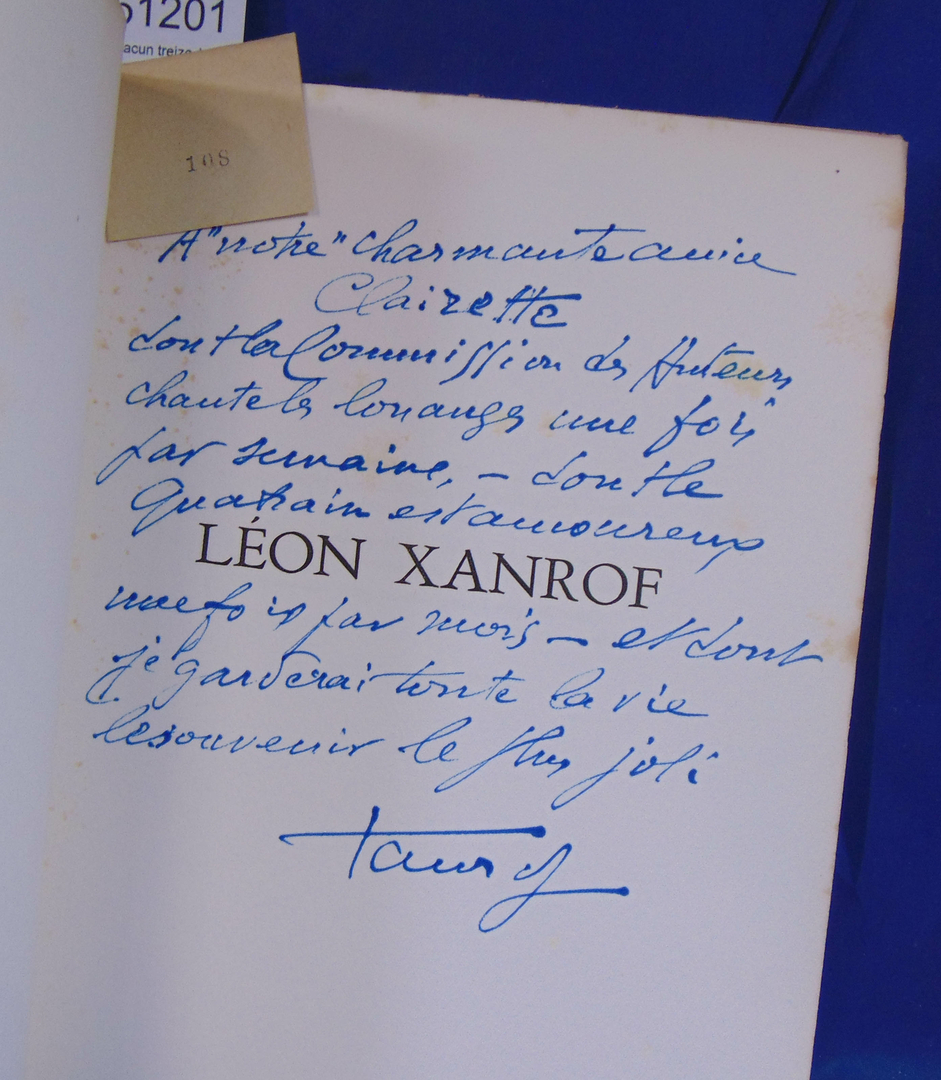 51201
acun treize
108
A "notre" charmante amie
Clairette
dont la Commission des Auteurs
chante les louanges une fois
par semaine, — dont le
Quatrain est amoureux
LÉON XANROF
une fois par mois — et dont
je garderai toute la vie
le souvenir le plus joli